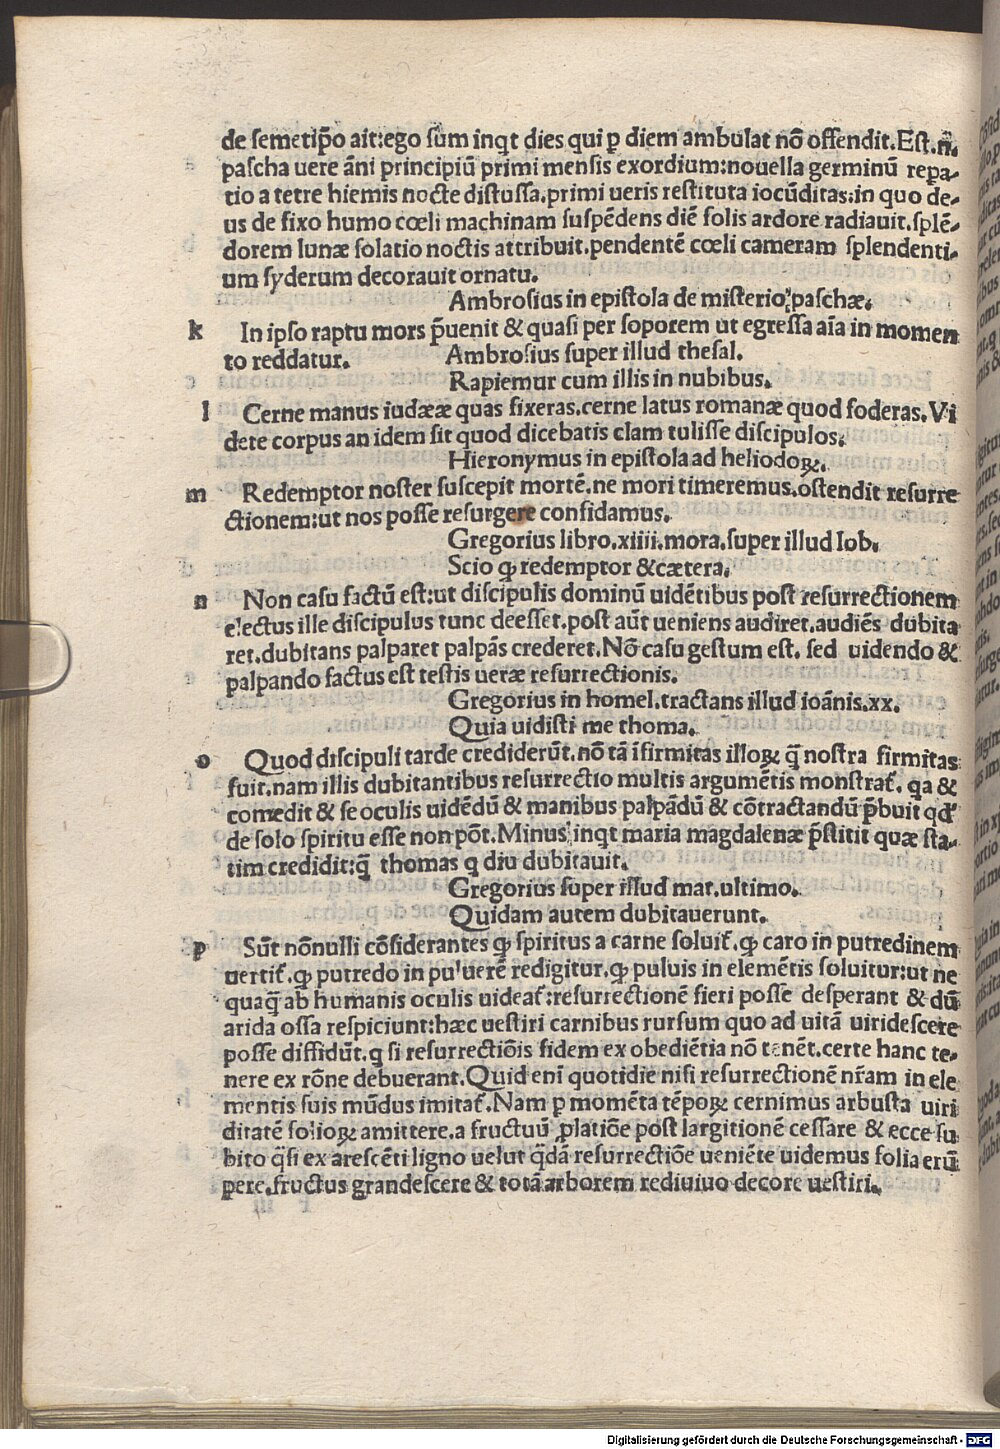 de semetip̄o ait:ego sum inqt dies qui ꝑ diem ambulat nō offendit.Est.n̄.
pascha uere āni principiū primi mensis exordium:nouella germinū repa-
tio a tetre hiemis nocte distussa.primi ueris restituta iocūditas:in quo de-
us de fixo humo cœli machinam suspēdens diē solis ardore radiauit.splē-
dorem lunæ solatio noctis attribuit.pendentē cœli cameram splendenti-
um syderum decorauit ornatu.
Ambrosius in epistola de misterio paschæ.
k In ipso raptu mors p̄uenit & quasi per soporem ut egressa aīa in momen
to reddatur. Ambrosius super illud thesal.
Rapiemur cum illis in nubibus.
l Cerne manus iudææ quas fixeras.cerne latus romanæ quod foderas.Vi
dete corpus an idem sit quod dicebatis clam tulisse discipulos.
Hieronymus in epistola ad heliodoꝝ.
m Redemptor noster suscepit mortē.ne mori timeremus.ostendit resurre
ctionem:ut nos posse resurgere confidamus.
Gregorius libro.xiiii.mora.super illud Iob.
Scio ꝙ redemptor &cætera.
n Non casu factū est:ut discipulis dominū uidētibus post resurrectionem
electus ille discipulus tunc deesset.post aūt ueniens audiret.audiēs dubita
ret.dubitans palparet palpās crederet.Nō casu gestum est. sed uidendo &
palpando factus est testis ueræ resurrectionis.
Gregorius in homel.tractans illud ioānis.xx.
Quia uidisti me thoma.
o Quod discipuli tarde crediderūt.nō tā īfirmitas illoꝝ q̄ nostra firmitas
fuit.nam illis dubitantibus resurrectio multis argumētis monstrat᷑. qa &
comedit & se oculis uidēdū & manibus palpādū & cōtractandū p̄buit qd᷑
de solo spiritu esse non pōt.Minus inqt maria magdalenæ p̄stitit quæ sta-
tim credidit:q̄ thomas q diu dubitauit.
Gregorius super illud mat.ultimo.
Quidam autem dubitauerunt.
p Sūt nōnulli cōsiderantes ꝙ spiritus a carne soluit᷑.ꝙ caro in putredinem
uertit᷑.ꝙ putredo in puluerē redigitur.ꝙ puluis in elemētis soluitur:ut ne
quaq̄ ab humanis oculis uideat᷑:resurrectionē fieri posse desperant & dū
arida ossa respiciunt:hæc uestiri carnibus rursum quo ad uitā uiridescere
posse diffidūt.q si resurrectiōis fidem ex obediētia nō tenēt.certe hanc te-
nere ex rōne debuerant.Quid enī quotidie nisi resurrectionē nr̄am in ele
mentis suis mūdus imitat᷑.Nam ꝑ momēta tēpoꝝ cernimus arbusta uiri
ditatē folioꝝ amittere.a fructuū ꝓlatiōe post largitionē cessare & ecce su
bito q̄si ex arescēti ligno uelut q̄dā resurrectiōe ueniēte uidemus folia erū
pere.fructus grandescere & totā arborem rediuiuo decore uestiri.
Digitalisierung gefördert durch die Deutsche Forschungsgemeinschaft - DFG